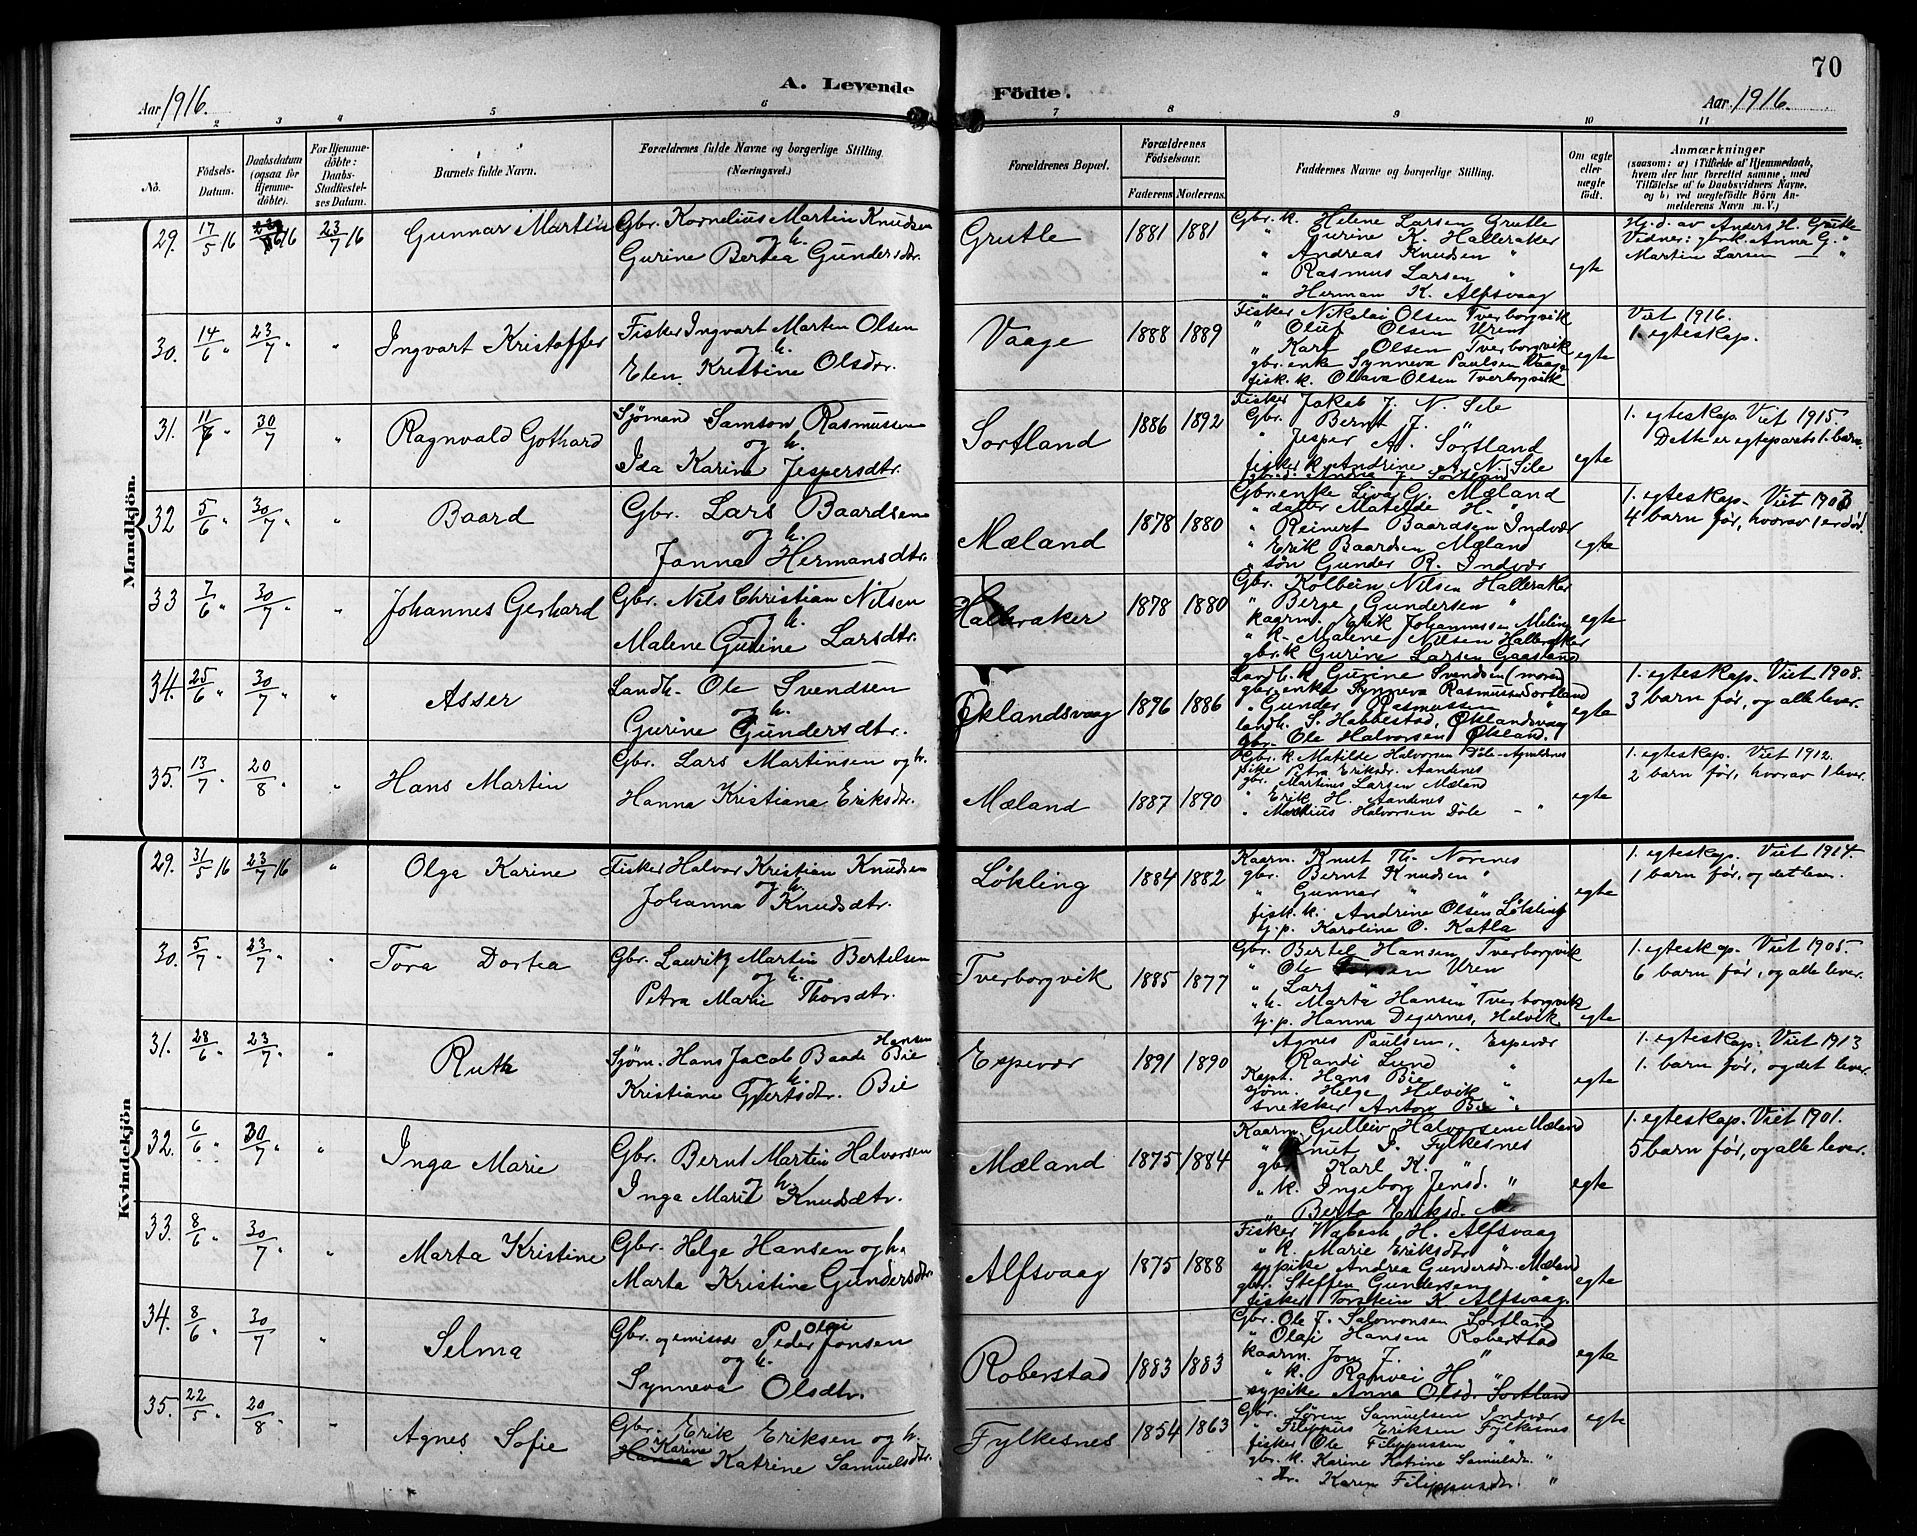 70
A. Levende Födte.
Aar 1916.
Aar 1916.
2 3 4 5 6 7 8 9 10 11
No.
Födsels-Datum.
Daabsdatum (ogsaa for Hjemme-döbte).
For Hjemme-döbte: Daabs-Stadfæstel-ses Datum.
Barnets fulde Navn.
Forældrenes fulde Navne og borgerlige Stilling. (Næringsvei.)
Forældrenes Bopæl.
Forældrenes Födselsaar.
Faderens. Moderens.
Faddernes Navne og borgerlige Stilling.
Om ægte eller uægte födt.
Anmærkninger
(saasom: a) i Tilfælde af Hjemmedaab, hvem der har forrettet samme, med Tilföielse af to Daabsvidners Navne, og b) ved uægtefödte Börn An-melderens Navn m. V.)
Mandkjön.
29. 17/5 16 23/7 16 Gunnar Martin
Gbr. Kornelius Martin Knudsen
og h.
Gurine Bertea Gundersdtr.
Grutle 1881 1881
Gbr. k. Helene Larsen Grutle
" Gurine K. Halleraker
" Andreas Knudsen "
" Rasmus Larsen "
" Herman K. Alfsvaag
egte
Hj.d. av Anders H. Grutle
Vidner: gbr.k. Anna G. "
Martin Larsen "
30. 14/6 " 23/7 " " Ingvart Kristoffer
Fisker Ingvart Marten Olsen
og h.
Elen Kristine Olsdtr.
Vaage 1888 1889
Fisker Nikolai Olsen Tverborgvik
" Oluf Olsen Uren
" Karl Olsen Tverborgvik
gbr. enke Synneva Paulsen Vaage
fisk. k. Olava Olsen Tverborgvik
egte
Viet 1916.
1. egteskap.
31. 11/6 " 30/7 " Ragnvald Gothard
Sjømand Samson Rasmussen
og h.
Ida Karine Jespersdtr.
Sortland 1886 1892
Fisker Jakob J. N. Sele
Gbr. Bernt J. "
" Jesper A. Sortland
fisker k. Andrine A. N. Sile
egte
1. egteskap. Viet 1915.
Dette er egteparets 1. barn
32 5/6 " 30/7 " " Baard
Gbr. Lars Baardsen
og h.
Janna Hermansdtr.
Mæland 1878 1880
Gbr. enke Liva G. Mæland
" datter Matilde H. "
" Reinert Baardsen Indvær
" Erik Baardsen Mæland
" søn Gunder R. Indvær
egte
1. egteskap. Viet 1903
4 barn før, hvorav 1 er død.
33 7/6 " 30/7 " " Johannes Gerhard
Gbr. Nils Christian Nilsen
og h.
Malene Gurine Larsdtr.
Halleraker 1878 1880
Gbr. Kolbein Nilsen Halleraker
" Berge Gundersen "
kaarm. Erik Johannessen Meling
" k. Malene Nilsen Halleraker
gbr. k. Gurine Larsen Gaasland
egte
34. 25/6 " 30/7 " " Asser
Landh. Ole Svendsen
og h.
Gurine Gundersdtr.
Øklandsvaag 1876 1886
Landh. k. Gurine Svendsen (moren)
gbr. enke Synneva Rasmussen Sortland
" Gunder Rasmussen "
landh. S. Habbestad, Øklandsvaag
gbr. Ole Halvorsen Økland.
egte
1. egteskap. Viet 1908.
3 barn før, og alle lever.
35. 13/7 " 20/8 " " Hans Martin
Gbr. Lars Martinsen og h.
Hanna Kristiana Eriksdtr.
Mæland 1887 1890
Gbr. k. Matilde Halvorsen Døle
pike Petra Eriksdr. Aandenes
gbr. Martines Larsen Mæland
" Erik H. Aandenes
" Markus Halvorsen Döle
egte
1. egteskap. Viet 1912.
2 barn før, hvorav 1 lever.
Kvindekjön
29. 31/5 16 23/7 16 " Olga Karine
Fisker Halvor Kristian Knudsen
og h.
Johanna Knudsdtr.
Løkling 1884 1882
Kaarm. Knut Th. Norenes
gbr. Bernt Knudsen "
" Gunnar " "
fisk. k. Andrine Olsen Løkling
tj. p. Karoline O. Katla
egte
1. egteskap. Viet 1914.
1 barn før, og det lever.
30. 5/7 " 23/7 " " Tora Dortea
Gbr. Lauritz Martin Bertelsen
og h.
Petra Marie Thorsdtr.
Tverborgvik 1885 1877
Gbr. Bertel Hansen Tverborgvik
" Ole Uren
" Lars " "
" k. Marta Hansen Tverborgvik
tj. p. Hanna Degernes, Helvik
egte
1. egteskap. Viet 1905.
6 barn før, og alle lever.
31. 28/6 " 23/7 " " Ruth
Sjøm. Hans Jacob Baade Hansen Bie
og h.
Kristiane Gjertsdtr. Bie
Espevær 1891 1890
Agnes Paulsen, Espevær
Randi Lund "
Kapt. Hans Bie "
sjøm. Helge Helvik "
snekker Anton Bie "
egte
1. egteskap. Viet 1913
1. barn før, og det lever.
32. 6/6 " 30/7 " " Inga Marie
Gbr. Bernt Martin Halvorsen
og h.
Inga Marie Knudsdtr.
Mæland 1875 1884
Kaarm. Gulleiv Halvorsen Mæland
" Knut J. Fylkesnes
gbr. Karl K. "
" k. Ingeborg Jensd. "
" Berta Eriksd. M.
egte
1. egteskap. Viet 1901.
5 barn før, og alle lever.
33. 8/6 " 30/7 " " Marta Kristine
Gbr. Helge Hansen og h.
Marta Kristine Gundersdtr.
Alfsvaag 1875 1888
Fisker Wabech H. Alfsvaag
" k. Marie Eriksdtr "
sypike Andrea Gundersdr. Mæland
gbr. Steffen Gundersen "
fisker Torstein K Alfsvaag.
egte
34. 8/6 30/7 " Selma
Gbr. og emissær Peder Olai Jonsen
og h.
Synneva Olsdtr.
Roberstad 1883 1883
Gbr. Ole J. Salomonsen Sortland
" Olai Hansen Roberstad
kaarm. Jon J. "
" k. Ranvei H "
sypike Anna Olsd. Sortland
egte
35. 22/5 20/8 " " Agnes Sofie
Gbr. Erik Eriksen og h.
Hanna Karine Katrine Samuelsdtr.
Fylkesnes 1854 1863
Gbr. Søren Samuelsen Indvær
" Filippus Eriksen Fylkesnes
fisker Ole Filippussen "
gbr. k. Karine Katrine Samuelsdr. "
" dr. Karen Filippusdr. "
egte